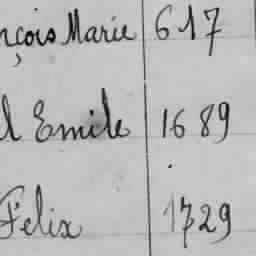 nçois Marie 617
l Emile 1689
Félix 1729